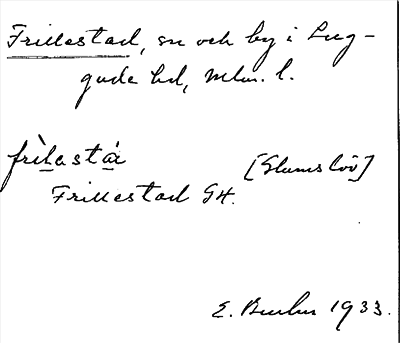 Frillestad, sn och by i Lug-
gude hd, Mlm. l.
frìlastá
[Glumslöv]
Frillestad GH.
E. 1933.